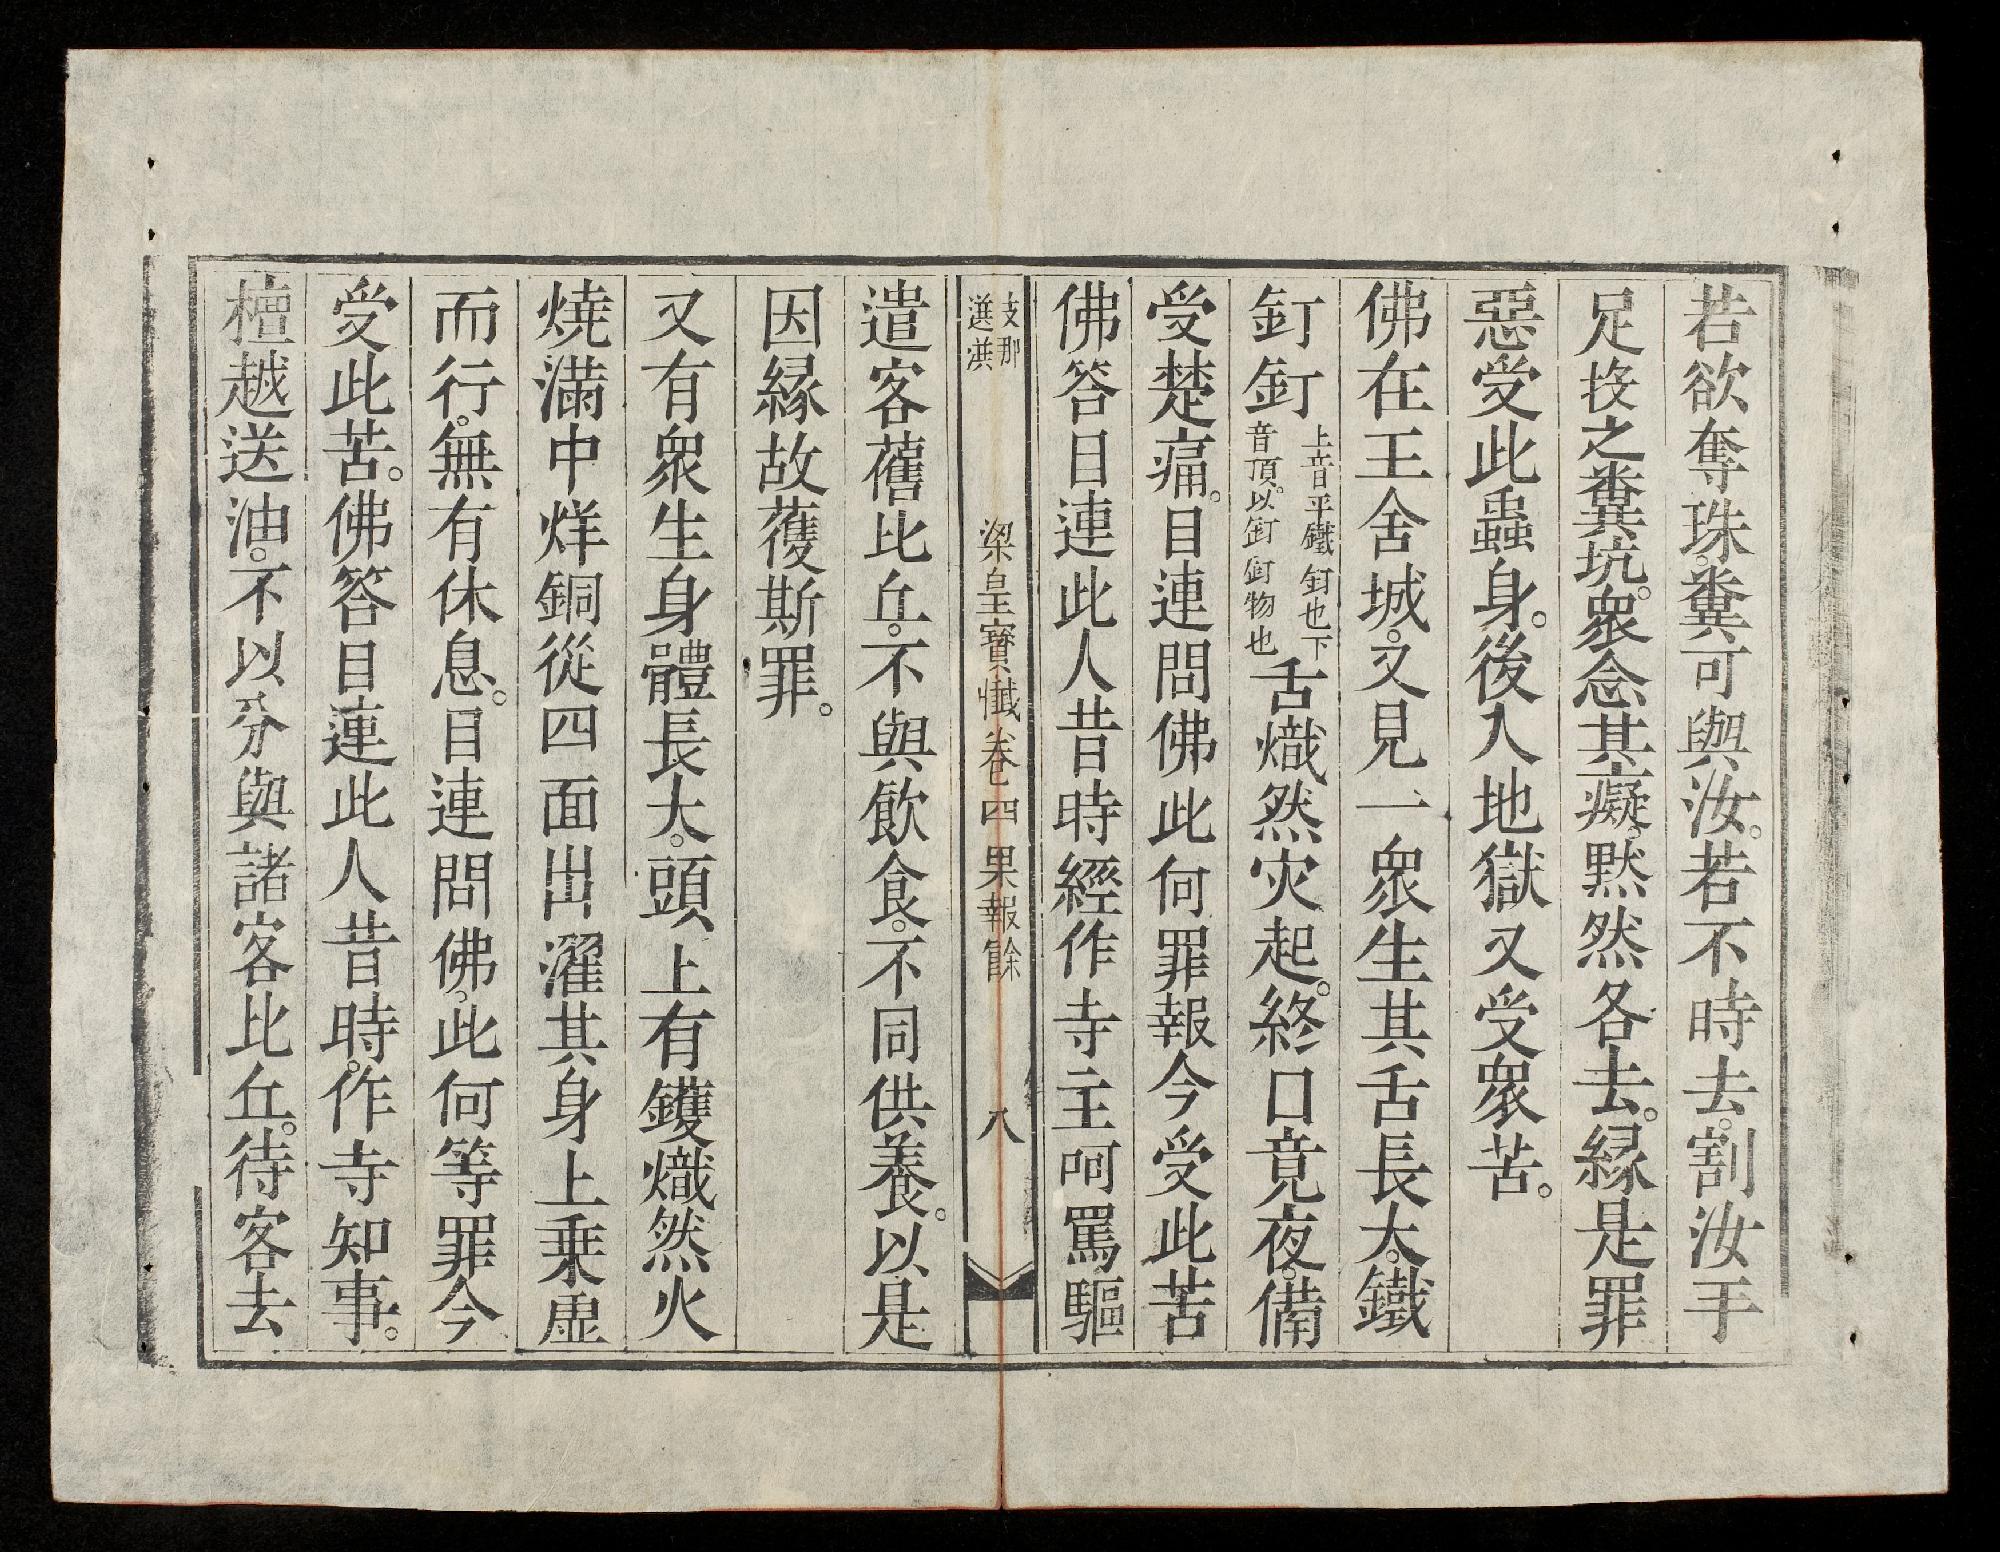 若欲奪珠。糞可與汝。若不時去。割汝手
足投之糞坑。眾念其癡。黙然各去。緣是罪
惡受此蟲身。後入地獄又受眾苦。
佛在王舍城。又見一眾生其舌長大。鐵
釘釘上音平鐵釘也下音頂。以釘釘物也舌熾然灾起。終日竟夜。備
受楚痛。目連問佛此何罪報今受此苦
佛答目連此人昔時經作寺主呵罵驅
支那
選洪
梁皇寶懺卷四 果報餘 八
遣客舊比丘。不與飲食。不同供養。以是
因緣故獲斯罪。
又有眾生身體長大。頭上有鑊熾然火
燒滿中烊銅從四面出濯其身上乘虛
而行。無有休息。目連問佛。此何等罪今
受此苦。佛答目連此人昔時。作寺知事。
檀越送油。不以分與諸客比丘。待客去